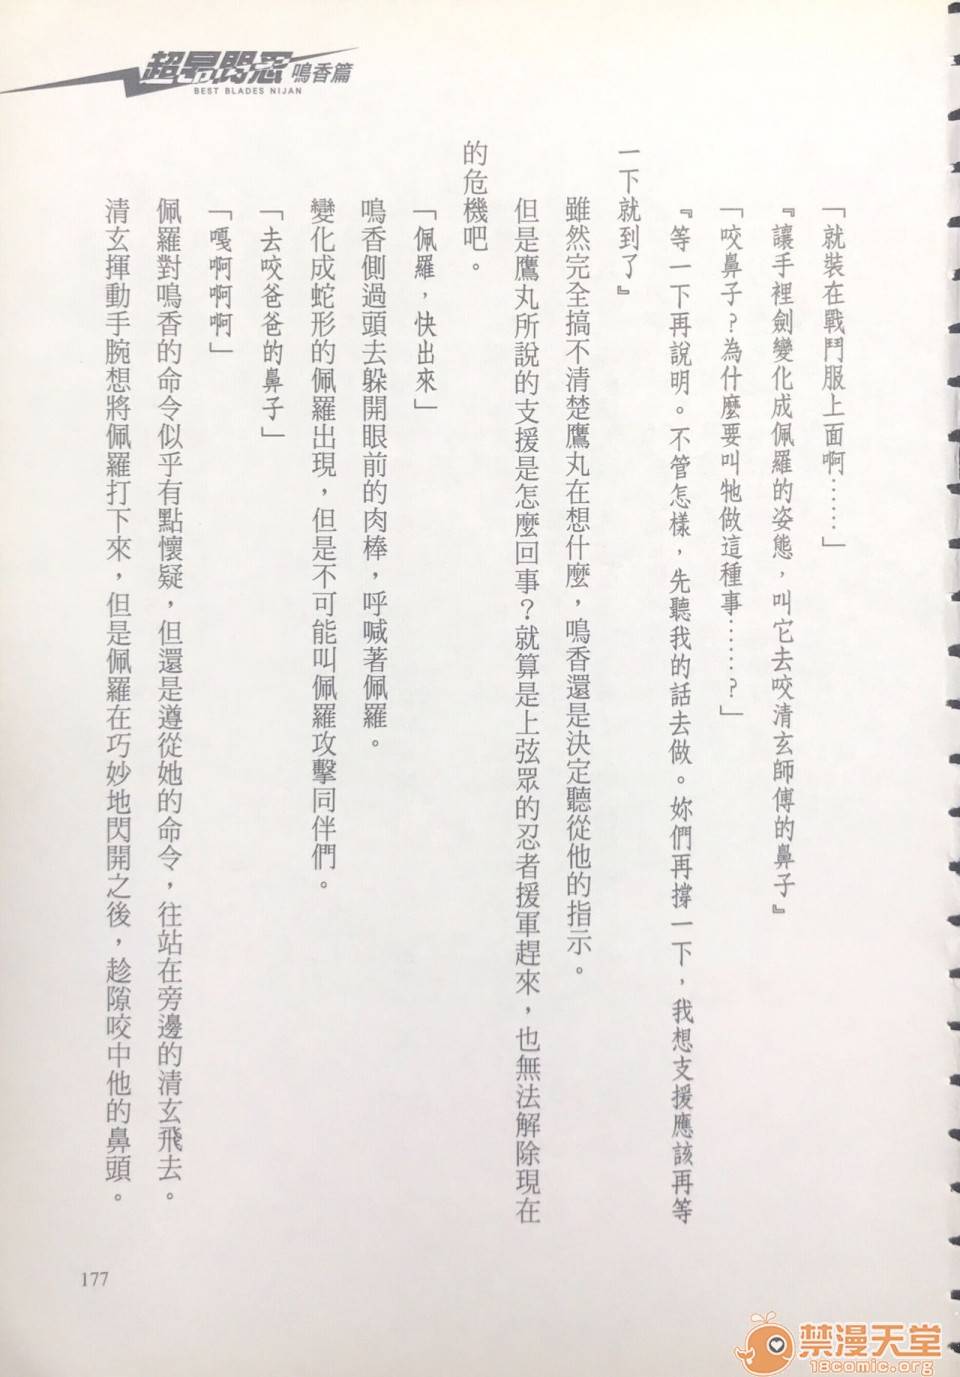 超昂閃忍 鳴香篇
BEST BLADES NIJAN
「就裝在戰鬥服上面啊……」
『讓手裡劍變化成佩羅的姿態，叫它去咬清玄師傅的鼻子』
「咬鼻子？為什麼要叫牠做這種事……？」
『等一下再說明。不管怎樣，先聽我的話去做。妳們再撐一下，我想支援應該再等
一下就到了』
雖然完全搞不清楚鷹丸在想什麼，鳴香還是決定聽從他的指示。
但是鷹丸所說的支援是怎麼回事？就算是上弦眾的忍者援軍趕來，也無法解除現在
的危機吧。
「佩羅，快出來」
鳴香側過頭去躲開眼前的肉棒，呼喊著佩羅。
變化成蛇形的佩羅出現，但是不可能叫佩羅攻擊同伴們。
「去咬爸爸的鼻子」
「嘎啊啊啊」
佩羅對鳴香的命令似乎有點懷疑，但還是遵從她的命令，往站在旁邊的清玄飛去。
清玄揮動手腕想將佩羅打下來，但是佩羅在巧妙地閃開之後，趁隙咬中他的鼻頭。
177
禁漫天堂
18comic.org